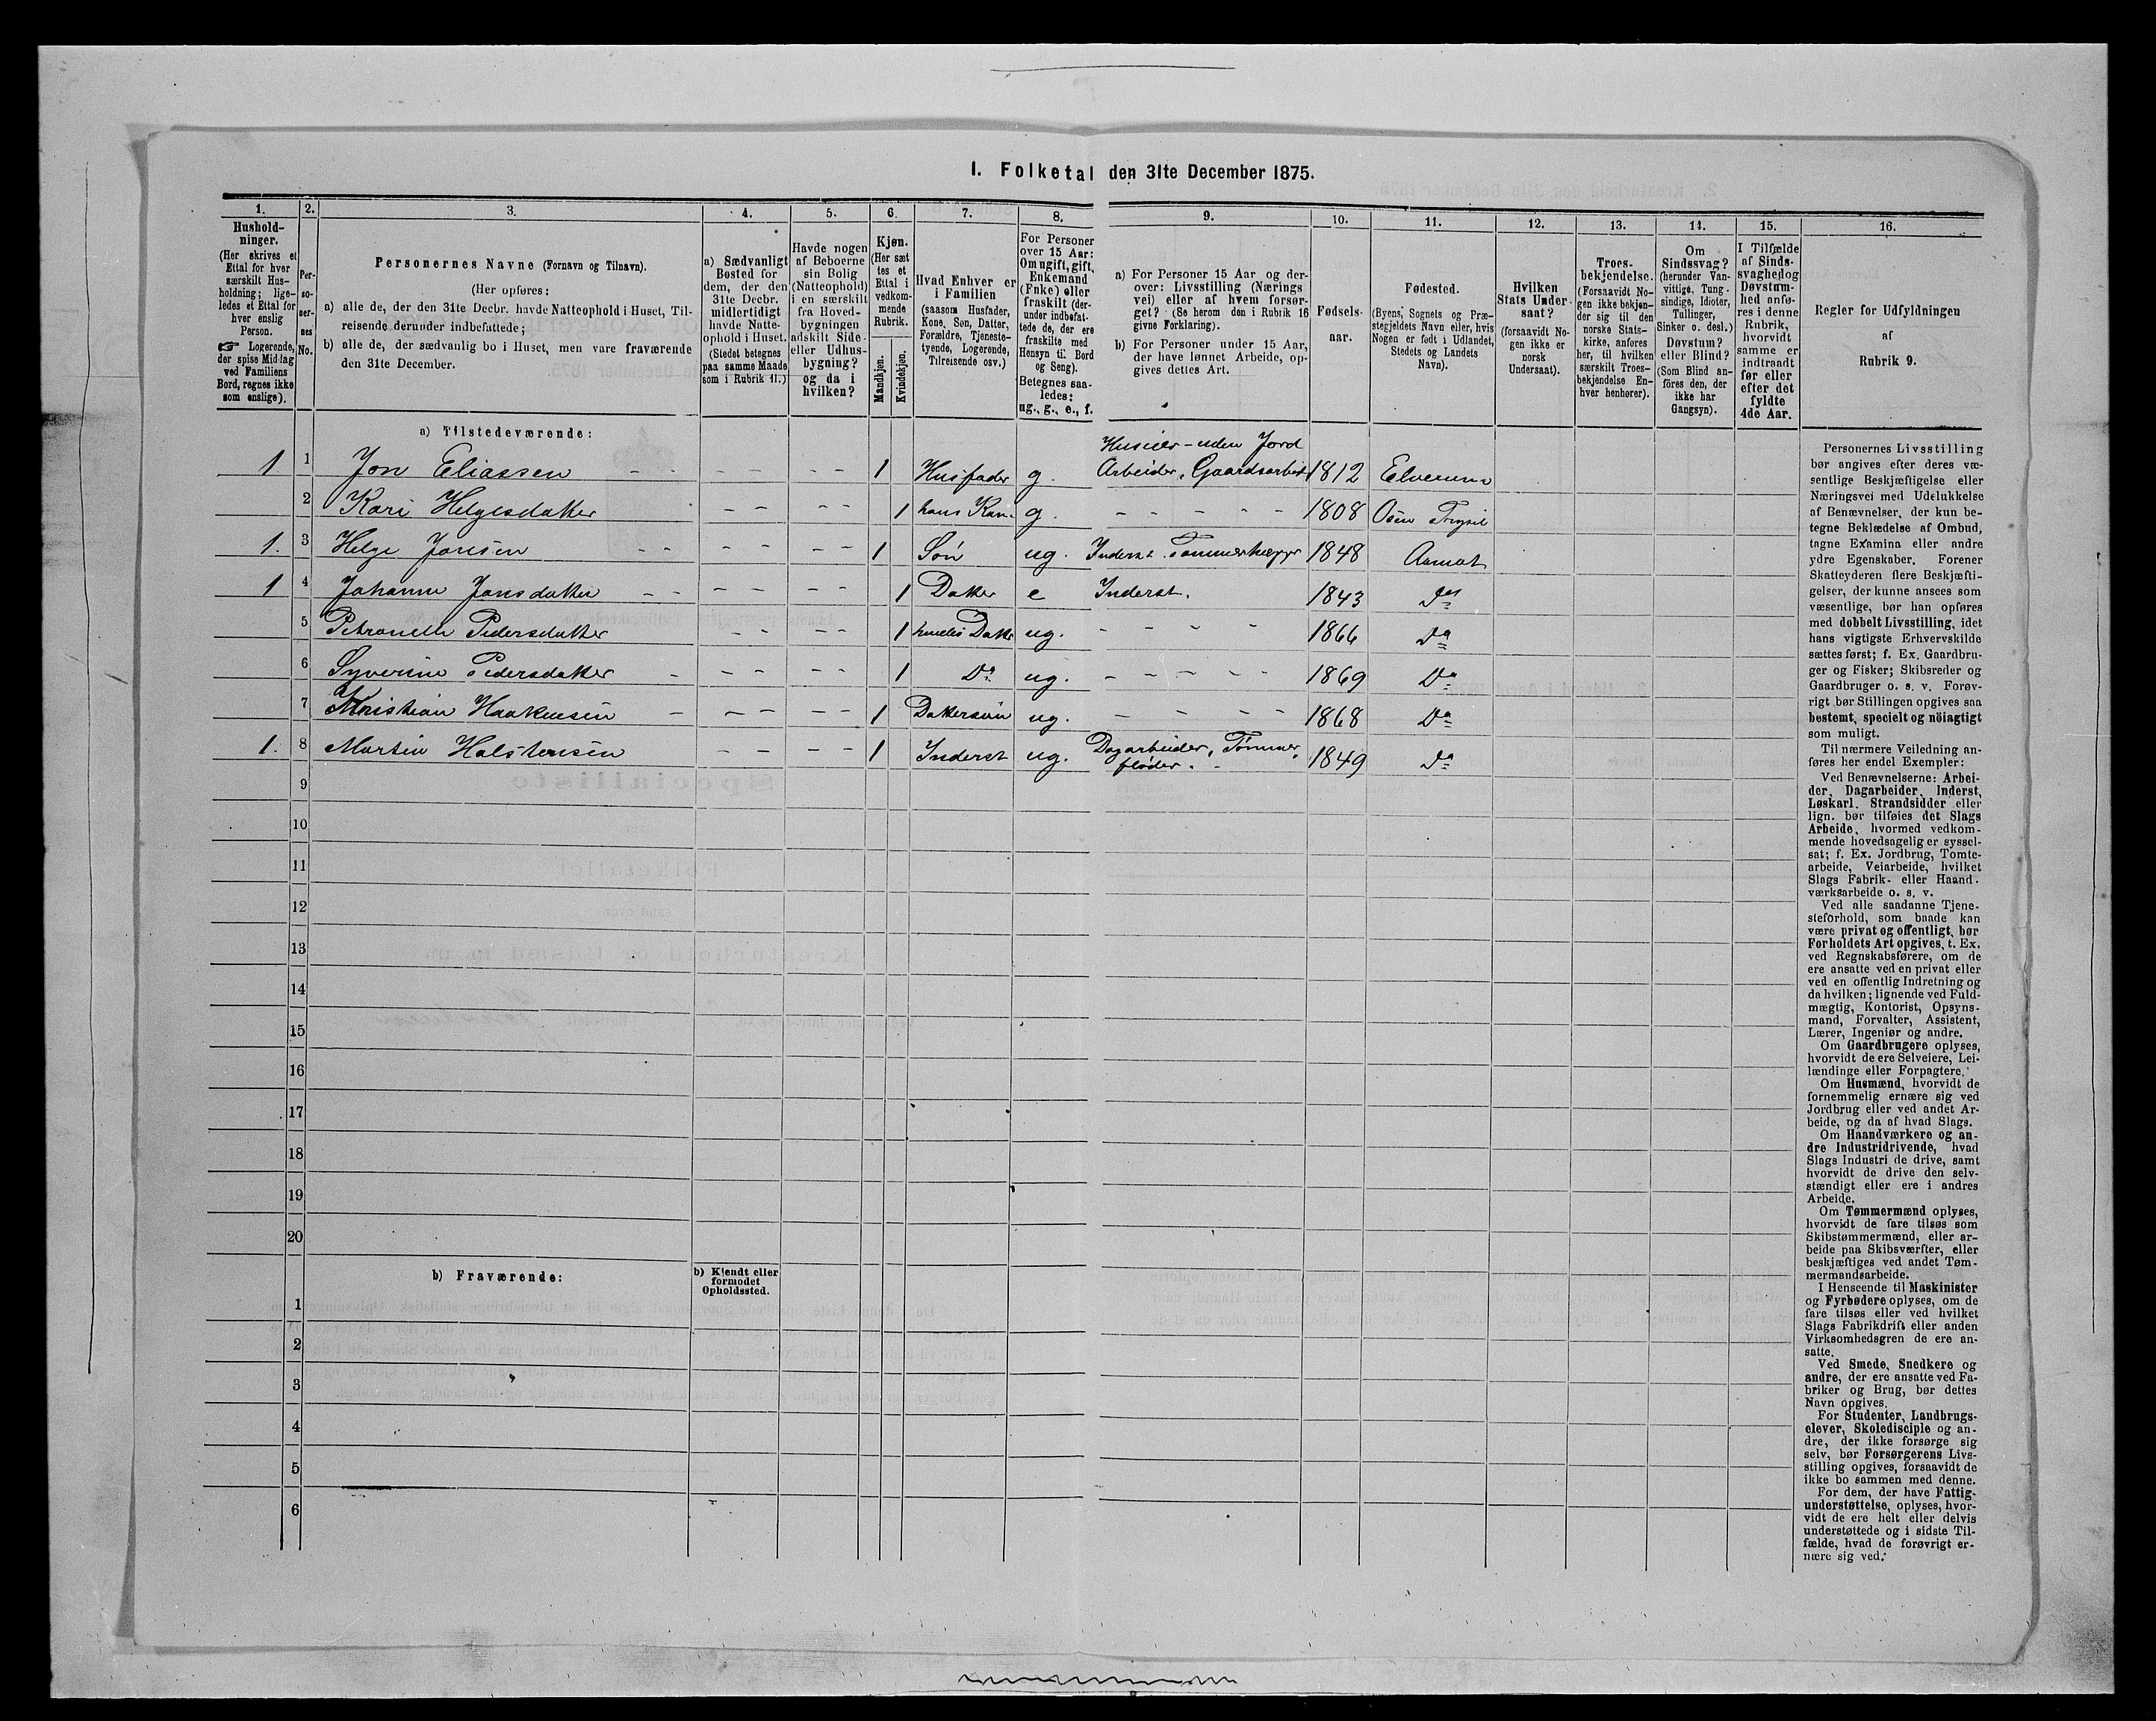 1. Folketal den 31te December 1875.
1. 2. 3. 4. 5. 6. 7. 8. 9. 10. 11. 12. 13. 14. 15. 16.
Hushold-
ninger.
(Her skrives et
Ettal for hver
særskilt Hus-
holdning; lige-
ledes et Ettal for
hver enslig
Person.
☞ Logerende,
der spise Middag
ved Familiens
Bord, regnes ikke
som enslige).
Per-
so-
ner-
nes
No.
Personernes Navne (Fornavn og Tilnavn).
(Her opføres:
a) alle de, der den 31te Decbr. havde Natteophold i Huset, Til-
reisende derunder indbefattede;
b) alle de, der sædvanlig bo i Huset, men vare fraværende
den 31te December.
a) Sædvanligt
Bosted for
dem, der den
31te Decbr.
midlertidigt
havde Natte-
ophold i Huset.
(Stedet betegnes
paa samme Maade
som i Rubrik 11.)
Havde nogen
af Beboerne
sin Bolig
(Natteophold)
i en særskilt
fra Hoved-
bygningen
adskilt Side-
eller Udhus-
bygning?
og da i
hvilken?
Kjøn.
(Her sæt
tes et
Ettal i
vedkom-
mende
Rubrik.
Mandkjøn.
Kvindekjøn.
Hvad Enhver er
i Familien
(saasom Husfader,
Kone, Søn, Datter,
Forældre, Tjeneste-
tyende, Logerende,
Tilreisende osv.)
For Personer
over 15 Aar:
Om ugift, gift,
Enkemand
(Enke) eller
fraskilt (der-
under indbefat-
tede de, der ere
fraskilte med
Hensyn til Bord
og Seng).
Betegnes saa-
ledes:
ug., g., e., f.
a) For Personer 15 Aar og der-
over: Livsstilling (Nærings
vei) eller af hvem forsør-
get? (Se herom den i Rubrik 16
givne Forklaring).
b) For Personer under 15 Aar,
der have lønnet Arbeide, op-
gives dettes Art.
Fødsels-
aar.
Fødested.
(Byens, Sognets og Præ-
stegjeldets Navn eller, hvis
Nogen er født i Udlandet,
Stedets og Landets
Navn).
Hvilken
Stats Under-
saat?
(forsaavidt No-
gen ikke er
norsk
Undersaat).
Troes-
bekjendelse.
(Forsaavidt No-
gen ikke bekjen-
der sig til den
norske Stats-
kirke, anføres
her, til hvilken
særskilt Troes-
bekjendelse En-
hver henhører).
Om
Sindssvag?
(herunder Van-
vittige, Tung-
sindige, Idioter,
Tullinger,
Sinker o. desl.)
Døvstum?
eller Blind?
(Som Blind an-
føres den, der
ikke har
Gangsyn).
I Tilfælde
af Sinds-
svaghed og
Døvstum-
hed anfø-
res i denne
Rubrik,
hvorvidt
samme er
indtraadt
før eller
efter det
fyldte
4de Aar.
Regler for Udfyldningen
af
Rubrik 9.
a) Tilstedeværende:
Huseier - uden Jord
1 1 Jon Eliassen - - - - - - 1 Husfader g. Arbeider, Gaardsarbeid 1812 Elverum
2 Kari Helgesdatter - - - - 1 hans Kone g. - - - - - 1808 Osen Trysil
1. 3 Helge Jonsen - - - - - - 1 Søn ug. Inderst. Tømmerhugger 1848 Aamot
1 4 Johanne Jonsdatter - - - - - - 1 Datter e Inderst. 1843 Do
5 Petronelle Pedersdatter - - - - 1 hendes Datter ug. - - - - 1866 Do
6 Syverine Pedersdatter - - - - - 1 Do ug. - - - - - 1869 Do
7 Kristian Haakensen - - - - - 1 Dattersøn ug. - - - - 1868 Do
1. 8 Martin Halstensen - - - - 1 Inderst ug. Dagarbeider, Tømmer-
fløder. 1849 Do
9
10
11
12
13
14
15
16
17
18
19
20
b) Fraværende:
b) Kjendt eller
formodet
Opholdssted.
1
2
3
4
5
6
Personernes Livsstilling
bør angives efter deres væ-
sentlige Beskjæftigelse eller
Næringsvei med Udelukkelse
af Benævnelser, der kun be-
tegne Beklædelse af Ombud,
tagne Examina eller andre
ydre Egenskaber. Forener
Skatteyderen flere Beskjæfti-
gelser, der kunne ansees som
væsentlige, bør han opføres
med dobbelt Livsstilling, idet
hans vigtigste Erhvervskilde
sættes først; f. Ex. Gaardbru-
ger og Fisker; Skibsreder og
Gaardbruger o. s. v. Forøv-
rigt bør Stillingen opgives saa
bestemt, specielt og nöiagtigt
som muligt.
Til nærmere Veiledning an-
føres her endel Exempler:
Ved Benævnelserne: Arbei-
der, Dagarbeider, Inderst,
Løskarl, Strandsidder eller
lign. bør tilføies det Slags
Arbeide, hvormed vedkom-
mende hovedsagelig er syssel-
sat; f. Ex. Jordbrug, Tomte-
arbeide, Veiarbeide, hvilket
Slags Fabrik- eller Haand-
værksarbeide o. s. v.
Ved alle saadanne Tjene-
steforhold, som baade kan
være privat og offentligt, bør
Forholdets Art opgives, t. Ex.
ved Regnskabsførere, om de
ere ansatte ved en privat eller
ved en offentlig Indretning og
da hvilken; lignende ved Fuld-
mægtig, Kontorist, Opsyns-
mand, Forvalter, Assistent,
Lærer, Ingeniør og andre.
Om Gaardbrugere oplyses,
hvorvidt de ere Selveiere, Lei-
lændinge eller Forpagtere.
Om Husmænd, hvorvidt de
fornemmelig ernære sig ved
Jordbrug eller ved andet Ar-
beide, og da af hvad Slags.
Om Haandværkere og an-
dre Industridrivende, hvad
Slags Industri de drive, samt
hvorvidt de drive den selv-
stændigt eller ere i andres
Arbeide.
Om Tømmermænd oplyses,
hvorvidt de fare tilsøs som
Skibstømmermænd, eller ar-
beide paa Skibsværfter, eller
beskjæftiges ved andet Tøm-
mermandsarbeide.
I Henseende til Maskinister
og Fyrbødere oplyses, om de
fare tilsøs eller ved hvilket
Slags Fabrikdrift eller anden
Virksomhedsgren de ere an-
satte.
Ved Smede, Snedkere og
andre, der ere ansatte ved Fa-
briker og Brug, bør dettes
Navn opgives.
For Studenter, Landbrugs-
elever, Skoledisciple og an-
dre, der ikke forsørge sig
selv, bør Forsørgerens Livs-
stilling opgives, forsaavidt de
ikke bo sammen med denne.
For dem, der have Fattig-
understøttelse, oplyses, hvor-
vidt de ere helt eller delvis
understøttede og i sidste Til-
fælde, hvad de forøvrigt er-
nære sig ved.